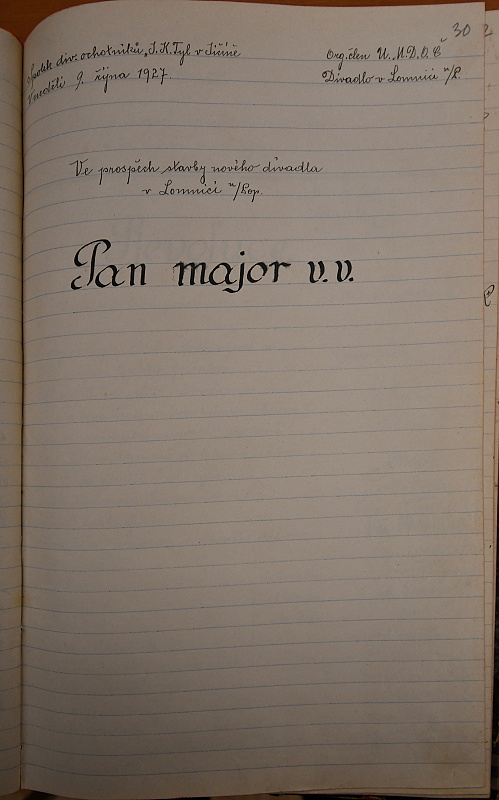 30
Spolek div. ochotníků „J. K. Tyl v Jičíně
Org. člen Ú. M. D. O. Č
V neděli 9. října 1927.
Divadlo v Lomnici n/P.
Ve prospěch stavby nového divadla
v Lomnici n/Pop.
Pan major v. v.